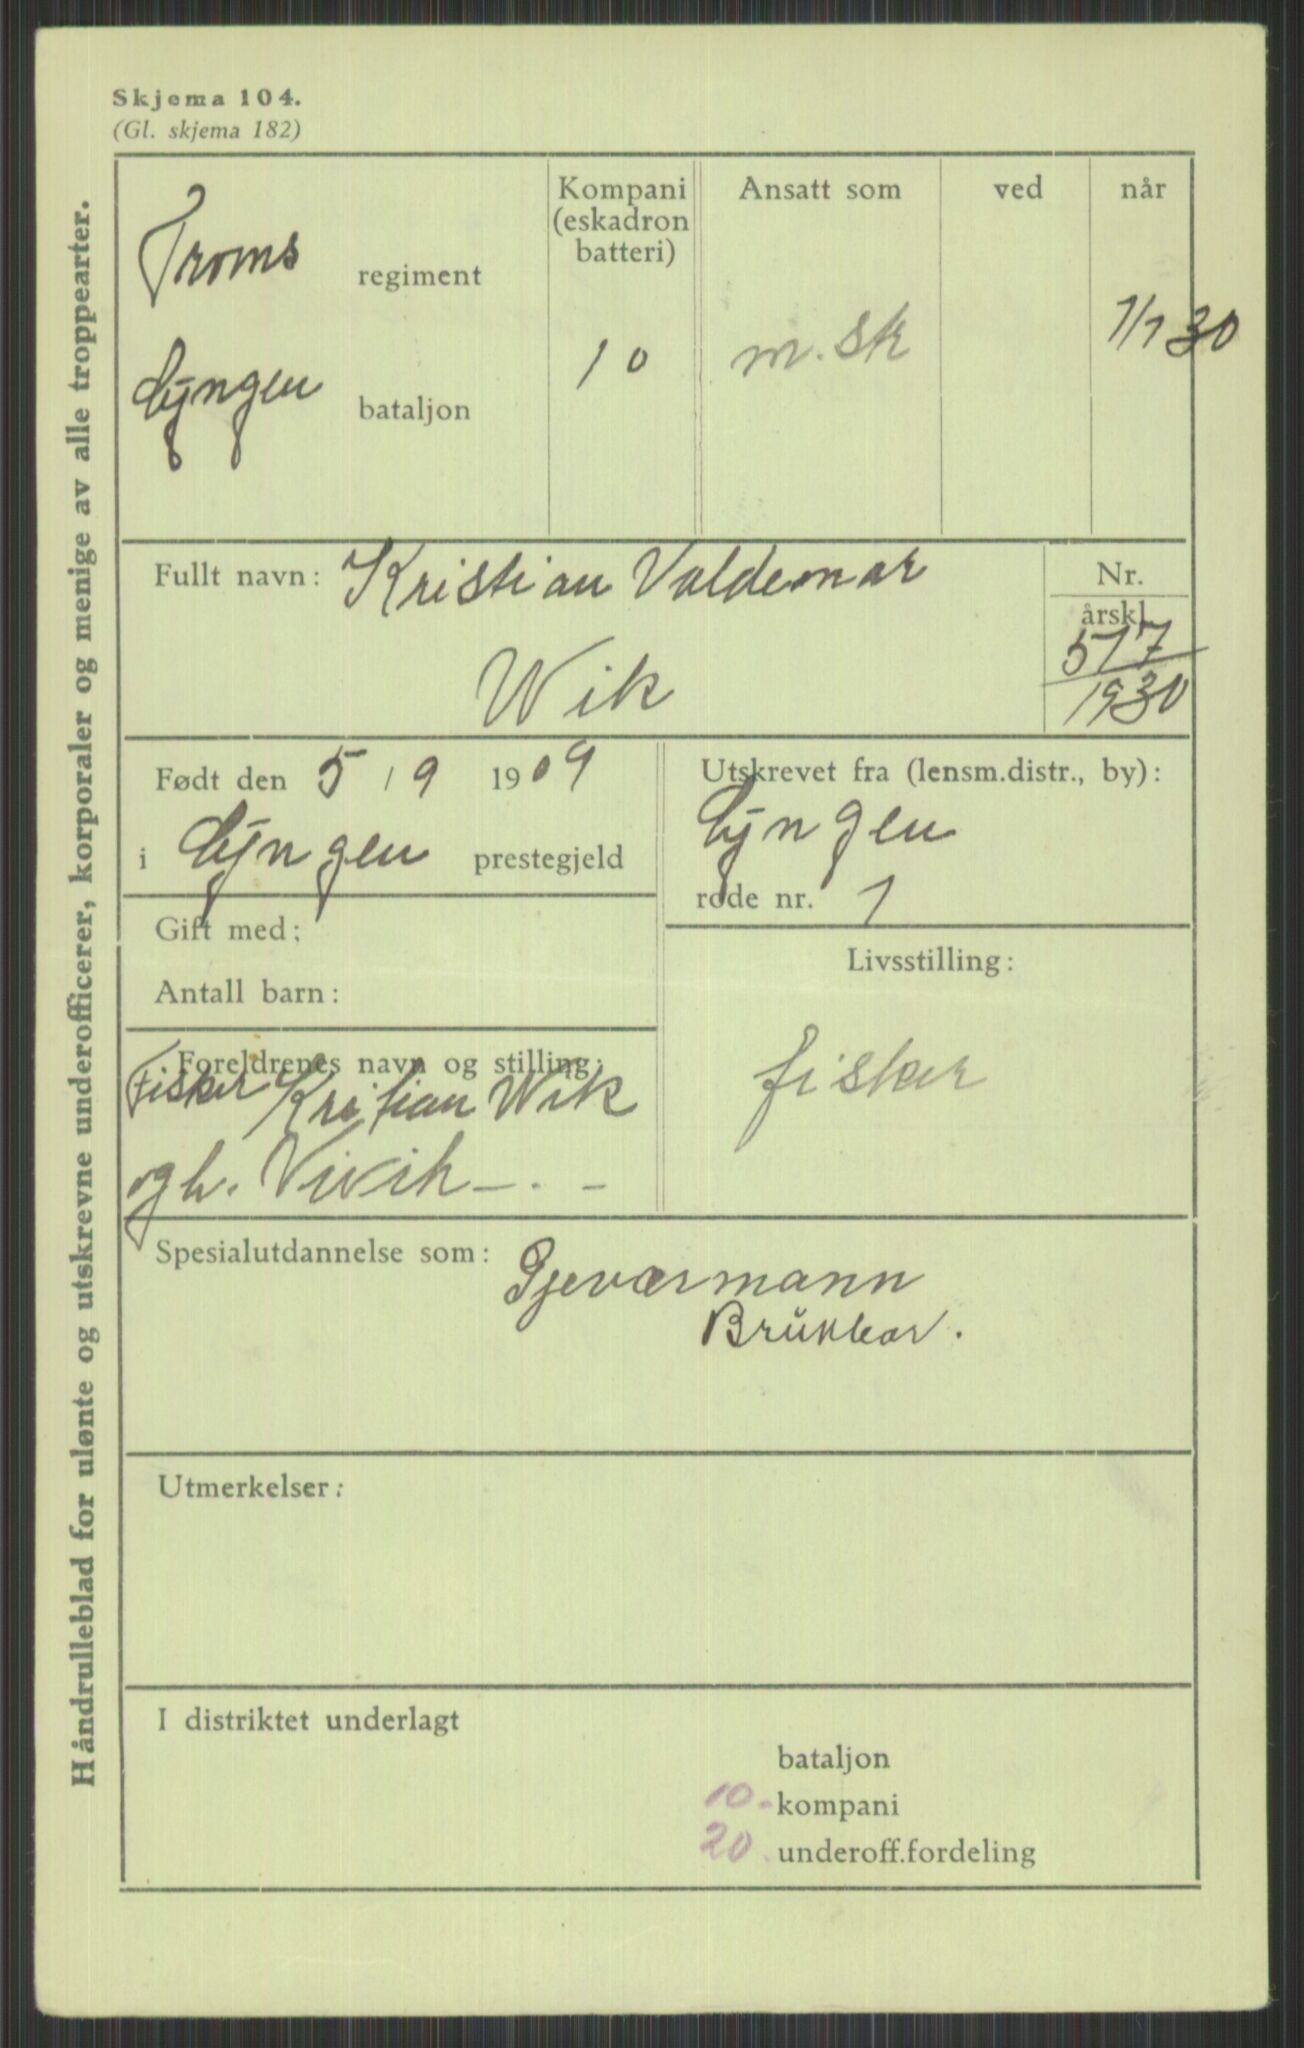 Skjema 104.
(Gl. skjema 182)
Håndrulleblad for ulønte og utskrevne underofficerer, korporaler og menige av alle troppearter.
Troms regiment
Lyngen bataljon
Kompani
(eskadron
batteri)
10
Ansatt som
m. sk
ved
når
1/1 30
Fullt navn: Kristian Valdemar
Wik
Nr.
årskl.
517
1930
Født den 5 / 9 1909
i Lyngen prestegjeld
Utskrevet fra (lensm.distr., by):
Lyngen
rode nr. 1
Gift med:
Antall barn:
Livsstilling:
fisker
Foreldrenes navn og stilling:
Fisker Kristian Wik
og h.
Spesialutdannelse som: Gjeværmann
Brukbar.
Utmerkelser:
I distriktet underlagt
bataljon
10. kompani
20. underoff.fordeling